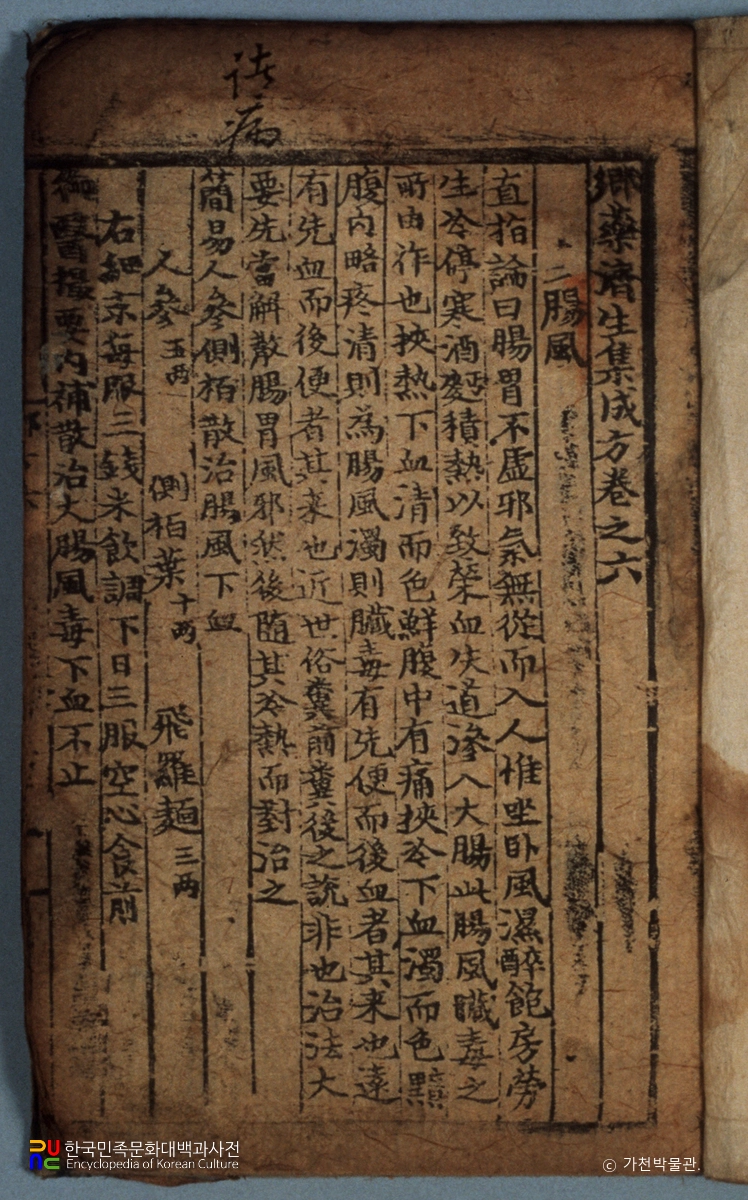 鄕藥濟生集成方卷之六
二腸風
直指論曰腸胃不虛邪氣無從而入人惟坐臥風濕醉飽房勞
生冷停寒酒麪積熱以致榮血失道滲入大腸此腸風臟毒之
所由作也挾熱下血清而色鮮腹中有痛挾冷下血濁而色黯
腹內略疼清則為腸風濁則臟毒有先便而後血者其来也遠
有先血而後便者其来也近世俗糞前糞後之說非也治法大
要先當解散腸胃風邪然後隨其冷熱而對治之
簡易人參側栢散治腸風下血
人參五两 側栢葉十两 飛羅麵三两
右細末每服三錢米飲調下日三服空心食前
御醫撮要內補散治大腸風毒下血不止
한국민족문화대백과사전
Encyclopedia of Korean Culture
ⓒ 가천박물관.